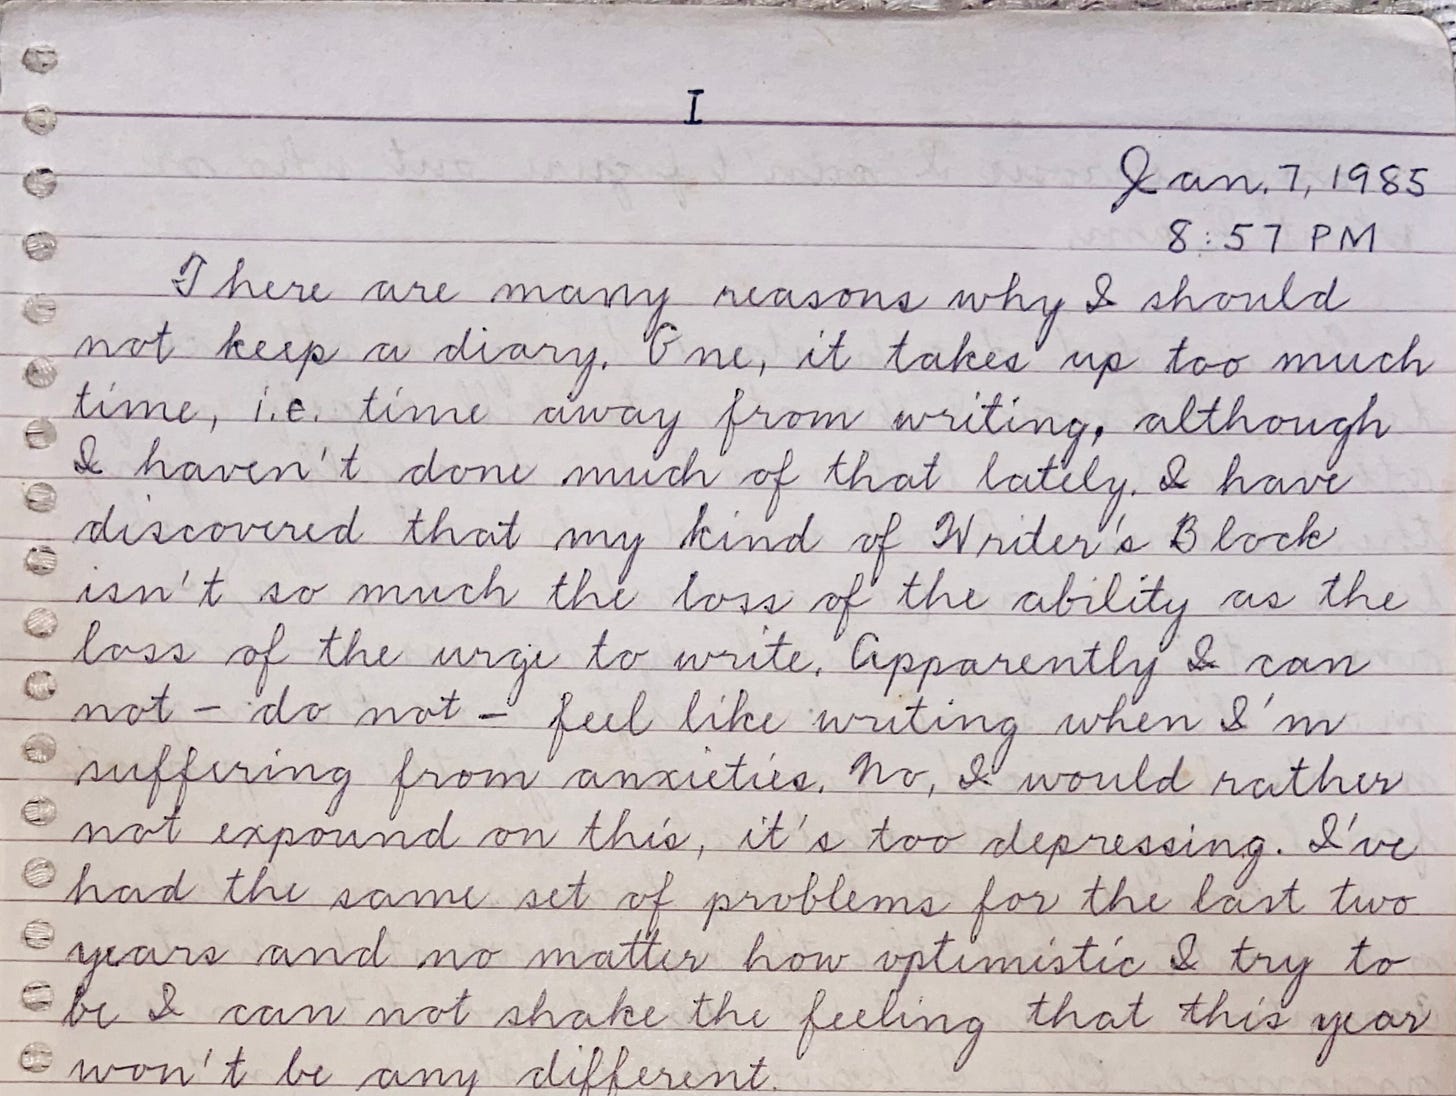 I
Jan. 7, 1985
8:57 PM
There are many reasons why I should
not keep a diary. One, it takes up too much
time, i.e. time away from writing, although
I haven't done much of that lately. I have
discovered that my kind of Writer's Block
isn't so much the loss of the ability as the
loss of the urge to write. Apparently I can
not - do not - feel like writing when I'm
suffering from anxieties. No, I would rather
not expound on this, it's too depressing. I've
had the same set of problems for the last two
years and no matter how optimistic I try to
be I can not shake the feeling that this year
won't be any different.